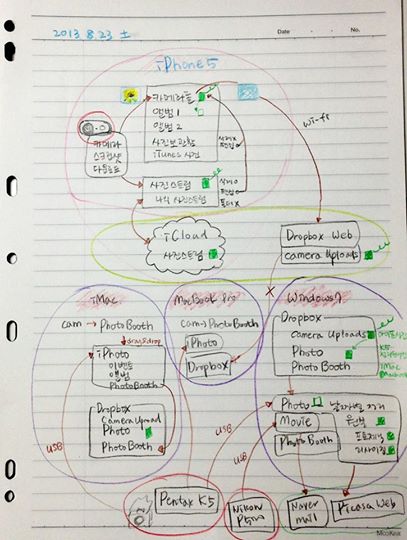 2013. 8. 23 土
Date
No.
iPhone5
카메라롤
앨범 1
앨범 2
사진보관함
iTunes 사진
wi-fi
카메라
스크린샷
다운로드
사진스트림
나의 사진스트림
iCloud
사진스트림
Dropbox Web
Camera Uploads
iMac
MacBook Pro
Windows7
Cam → PhotoBooth
drag&drop
iPhoto
이벤트
앨범
PhotoBooth
Dropbox
Camera Upload
Photo
PhotoBooth
Cam → PhotoBooth
iPhoto
Dropbox
Dropbox
Camera Uploads
Photo
PhotoBooth
K5
iMac
Photo
Movie
PhotoBooth
원본
USB
USB
USB
Pentax K5
Nikon
Naver
Picasa Web
MooKea